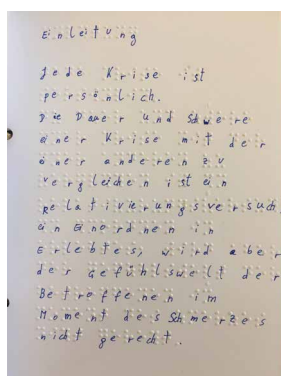 Einleitung
Jede Krise ist
persönlich.
Die Dauer und Schwere
einer Krise mit der
einer anderen zu
vergleichen ist ein
Relativierungsversuch,
ein Einordnen in
Erlebtes, wird aber
der Gefühlswelt der
Betroffenen im
Moment des Schmerzes
nicht gerecht.